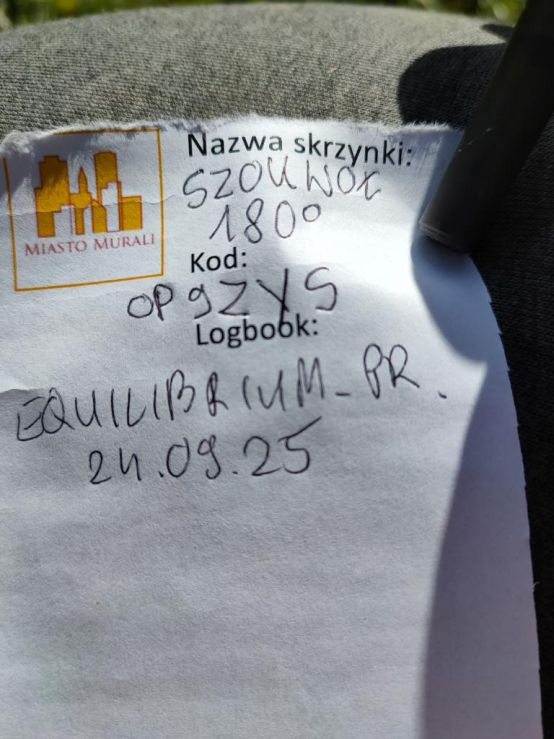 MIASTO MURALI
Nazwa skrzynki:
SZOUWOX
180°
Kod:
OP9ZYS
Logbook:
EQUILIBRIUM_PR.
24.09.25